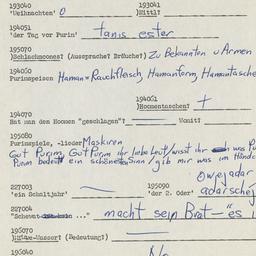 193040 193041
'Weihnachten' 0 )Nittl?
194051
'der Tag vor Purim' tanis ester
195070
)Schlachmones? (Aussprache? Bräuche?) Zu Bekannten u Armen
194060
Purimspeisen Haman=Rauchfleisch, Hamanform, Hamantasche
194061
)Homentaschen? +
194070
Hat man den Homen "geschlagen"? Womit?
195080
Purimspiele, -lieder Maskiren
Gut Purim, Gut Purim ihr liebe Leut / wisst ihr was Pu
Purim bedeit ein schönes Sinn / gib mir was im Händ
owejadar
227003 195090
'ein Schaltjahr' 'der 2. Oder' adarschej
227004
"Scheust ..." macht sein Brot – ës i
195070
? (Bedeutung?)
196040